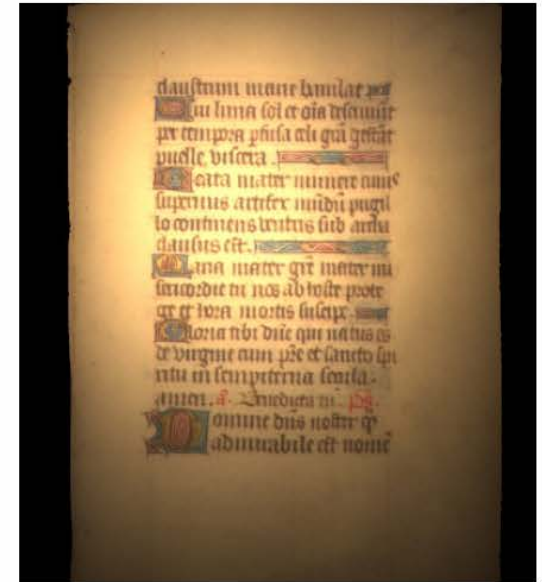 claustrum marie baiulat
Cui luna sol et oia deseruiut
per tempora pfusa celi gra gestat
puelle viscera.
Beata mater munere cuius
supernus artifex mudu pugil
lo continens ventris sub archa
clausus est.
Maria mater gre mater mi
sericordie tu nos ab hoste prote
ge et hora mortis suscipe.
Gloria tibi dne qui natus es
de virgine cum pre et sancto spi
ritu in sempiterna secula.
amen. a. Benedicta tu. ps.
Domine dns noster q
admirabile est nome